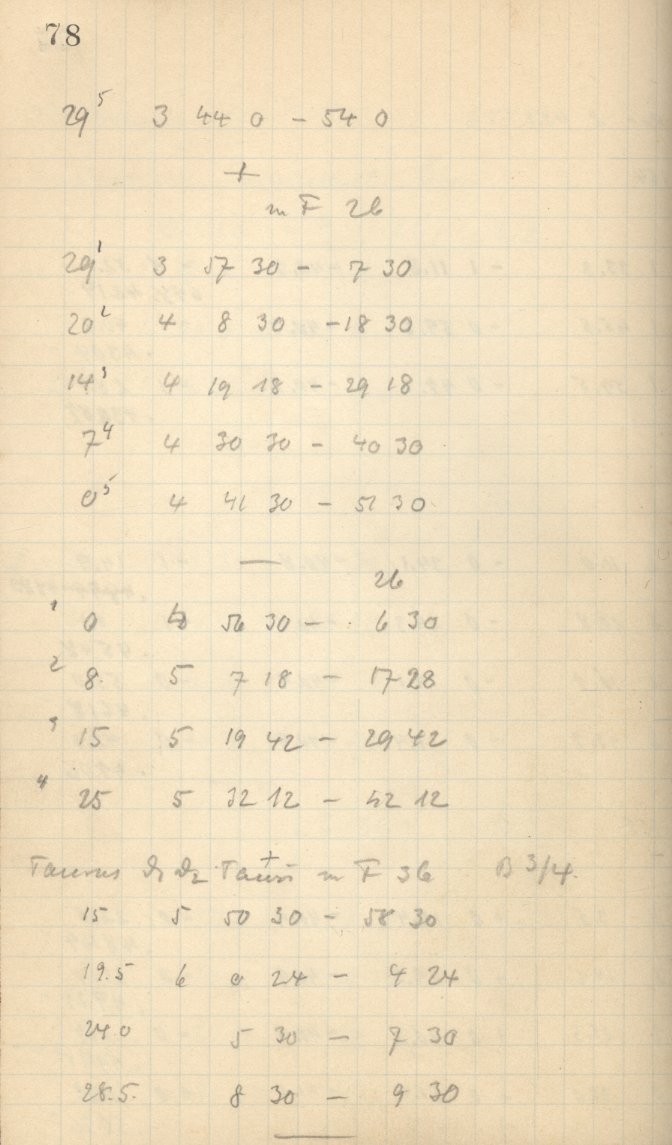 78
29⁵ 3 44 0 – 54 0
+
m F 26
29¹ 3 57 30 – 7 30
20² 4 8 30 – 18 30
14³ 4 19 18 – 29 18
7⁴ 4 30 30 – 40 30
0⁵ 4 41 30 – 51 30
—
26
¹ 0 56 30 – 6 30
² 8. 5 7 18 – 17 28
³ 15 5 19 42 – 29 42
⁴ 25 5 32 12 – 42 12
Taurus Tauri m F 36 B 3/4.
15 5 50 30 – 58 30
19.5 6 0 24 – 4 24
24 0 5 30 – 7 30
28.5. 8 30 – 9 30